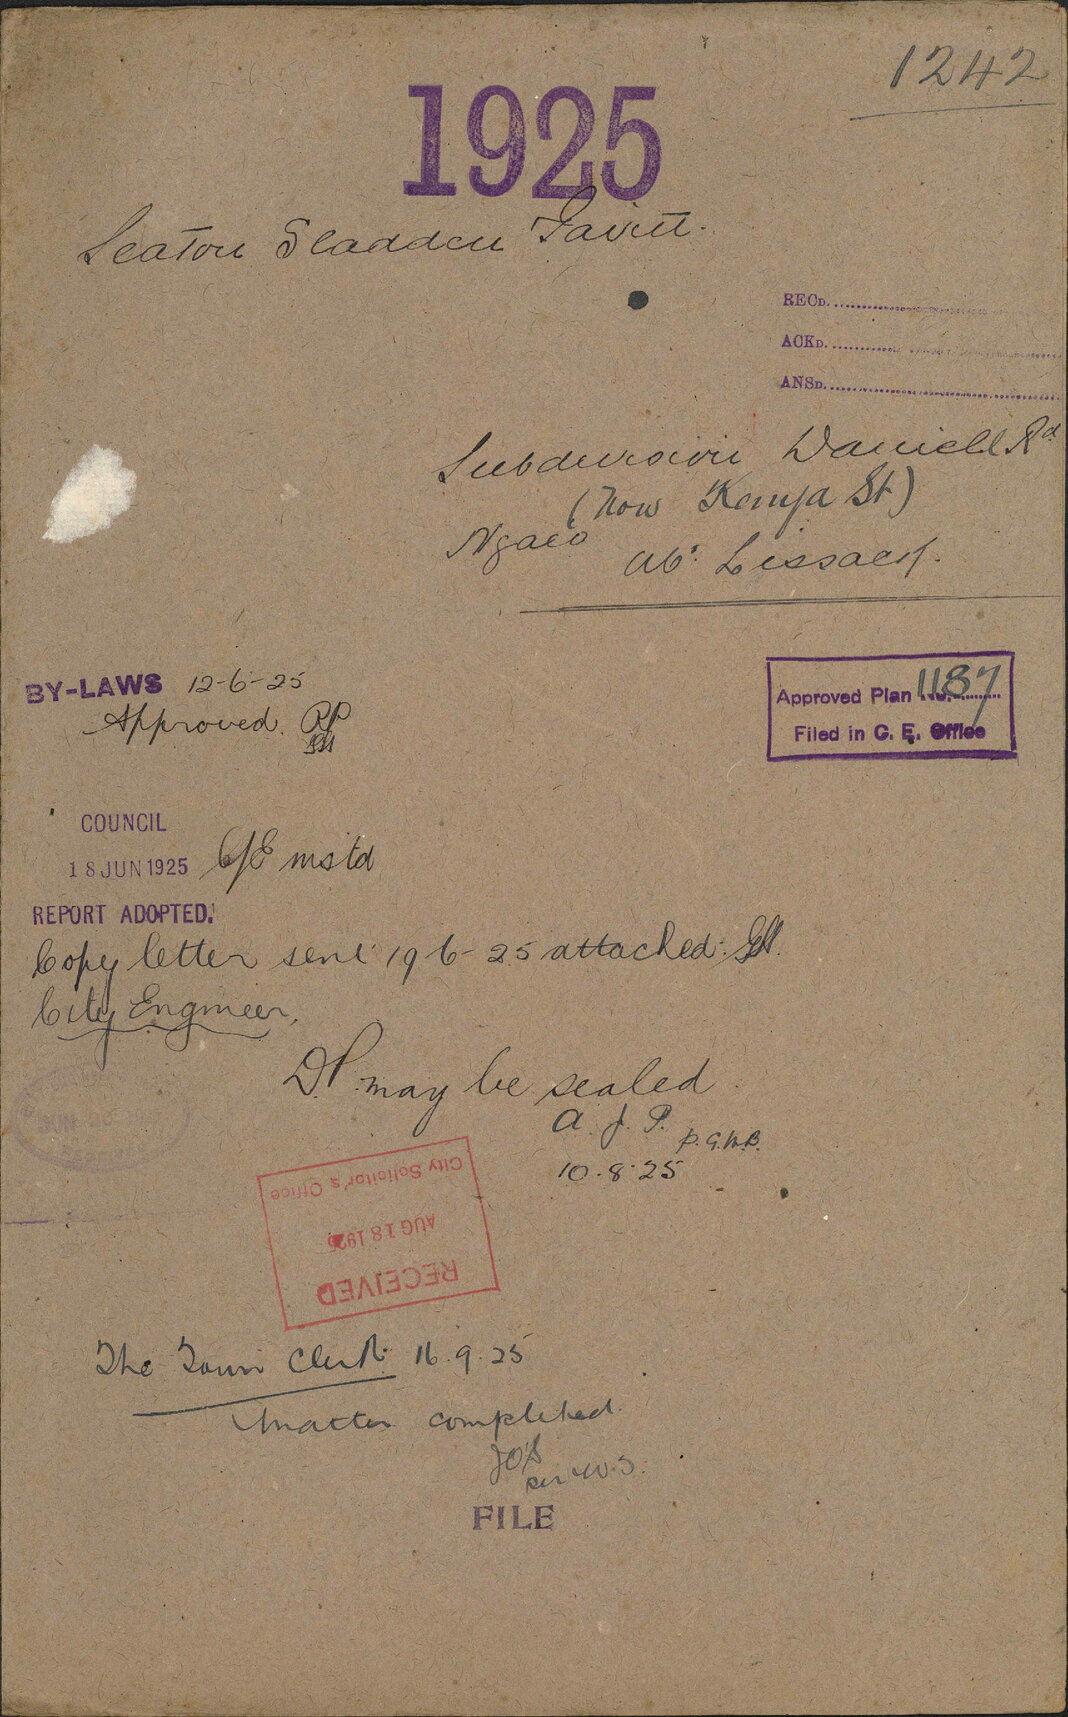 1242
1925
Seaton Sladden Pavitt.
RECD.
ACKD.
ANSD.
Subdivision Daniell Rd
(Now Kenya St)
Ngaio
Ab: Lissack.
BY-LAWS 12-6-25
Approved. RP
Approved Plan No. 1187
Filed in C. E. Office
COUNCIL
18 JUN 1925 C/E mstd
REPORT ADOPTED.
Copy letter sent 19 6-25 attached:
City Engineer,
D.P. may be sealed
A. J. P.
p. G.W.B.
10.8.25
RECEIVED
AUG 18 1925
City Solicitor's Office
The Town Clerk 16.9.25
Matter completed.
JO'S
per W.S.
FILE